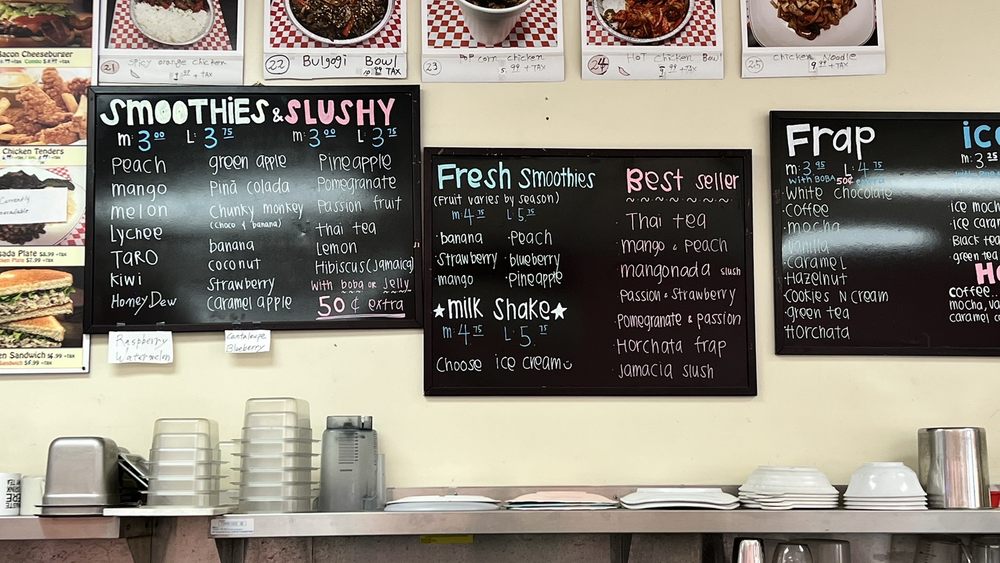 Bacon Cheeseburger
Chicken Tenders
Currently
sada Plate $8.99 +TAX
en Sandwich $6.99 +TAX
21 Spicy orange chicken
9.99 +TAX
22 Bulgogi Bowl
+TAX
23 Pop corn chicken
5.99 +TAX
24 Hot chicken Bowl
9.99 +TAX
25 Chicken Noodle
9.99 +TAX
SMOOTHIES & SLUSHY
m: 3 00 L: 3 75 m: 3 00 L: 3 75
Peach
mango
melon
Lychee
TARO
kiwi
Honey Dew
green apple
Pinā colada
Chunky monkey
(choco & banana)
banana
coconut
Strawberry
caramel apple
Pineapple
Pomegranate
Passion fruit
Thai tea
Lemon
Hibiscus (Jamaica)
with boba or Jelly
50¢ extra
Raspberry
Watermelon
Cantaloupe
Blueberry
Fresh Smoothies
(Fruit varies by season)
m: 4 75 L: 5 75
·banana ·Peach
Strawberry ·blueberry
mango ·Pineapple
★milk Shake★
m: 4 75 L: 5. 75
Choose ice cream
Best seller
~ ~ ~ ~ ~ ~ ~
Thai tea
·mango & peach
mangonada slush
Passion & Strawberry
·Pomegranate & passion
·Horchata frap
·Jamacia slush
Frap
m: 3 95 L: 4 75
with BOBA 50¢
White chocolate
·coffee
·mocha
·vanilla
·caramel
·Hazelnut
·Cookies N cream
·green tea
·Horchata
ice
m: 3
ice moch
ice caram
Black tea
green tea
Ho
coffee..
mocha, va
caramel, c